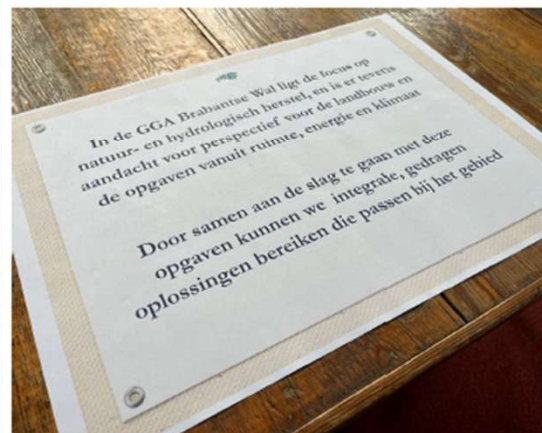 In de GGA Brabantse Wal ligt de focus op
natuur- en hydrologisch herstel, en is er tevens
aandacht voor perspectief voor de landbouw en
de opgaven vanuit ruimte, energie en klimaat
Door samen aan de slag te gaan met deze
opgaven kunnen we integrale, gedragen
oplossingen bereiken die passen bij het gebied